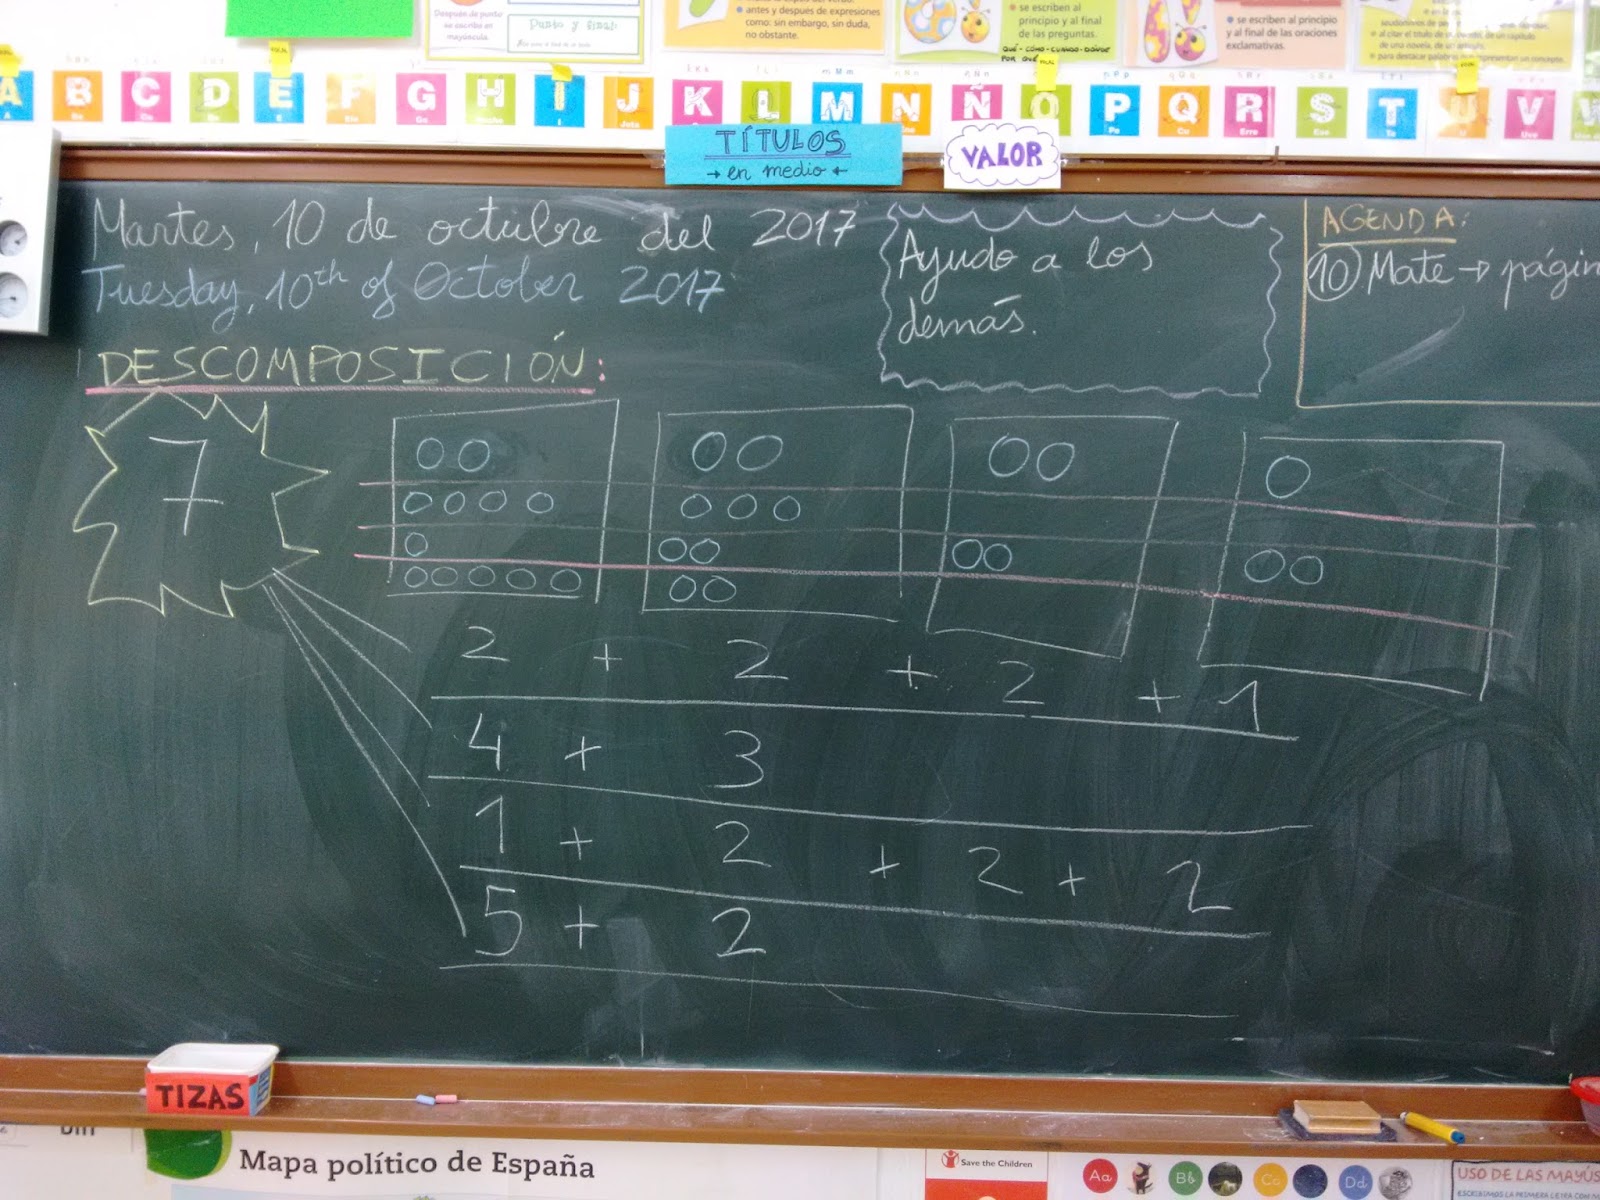 Después de punto
se escribe en
mayúscula.
Punto y final:
antes y después de expresiones
como: sin embargo, sin duda,
no obstante.
se escriben al
principio y al final
de las preguntas.
QUÉ - CÓMO - CUÁNDO - DÓNDE
POR QUÉ
se escriben al principio
y al final de las oraciones
exclamativas.
al citar el título de
de una novela, de un artículo.
para destacar palabras
representan un concepto.
A B C D E F G H I J K L M N Ñ O P Q R S T U V W
TÍTULOS
→ en medio ←
VALOR
Martes, 10 de octubre del 2017
Tuesday, 10th of October 2017
Ayudo a los
demás.
AGENDA:
10 Mate → págin
DESCOMPOSICIÓN:
7
2 + 2 + 2 + 1
4 + 3
1 + 2 + 2 + 2
5 + 2
TIZAS
Mapa político de España
Save the Children
Aa Bb Cc Dd
USO DE LAS MAYÚS